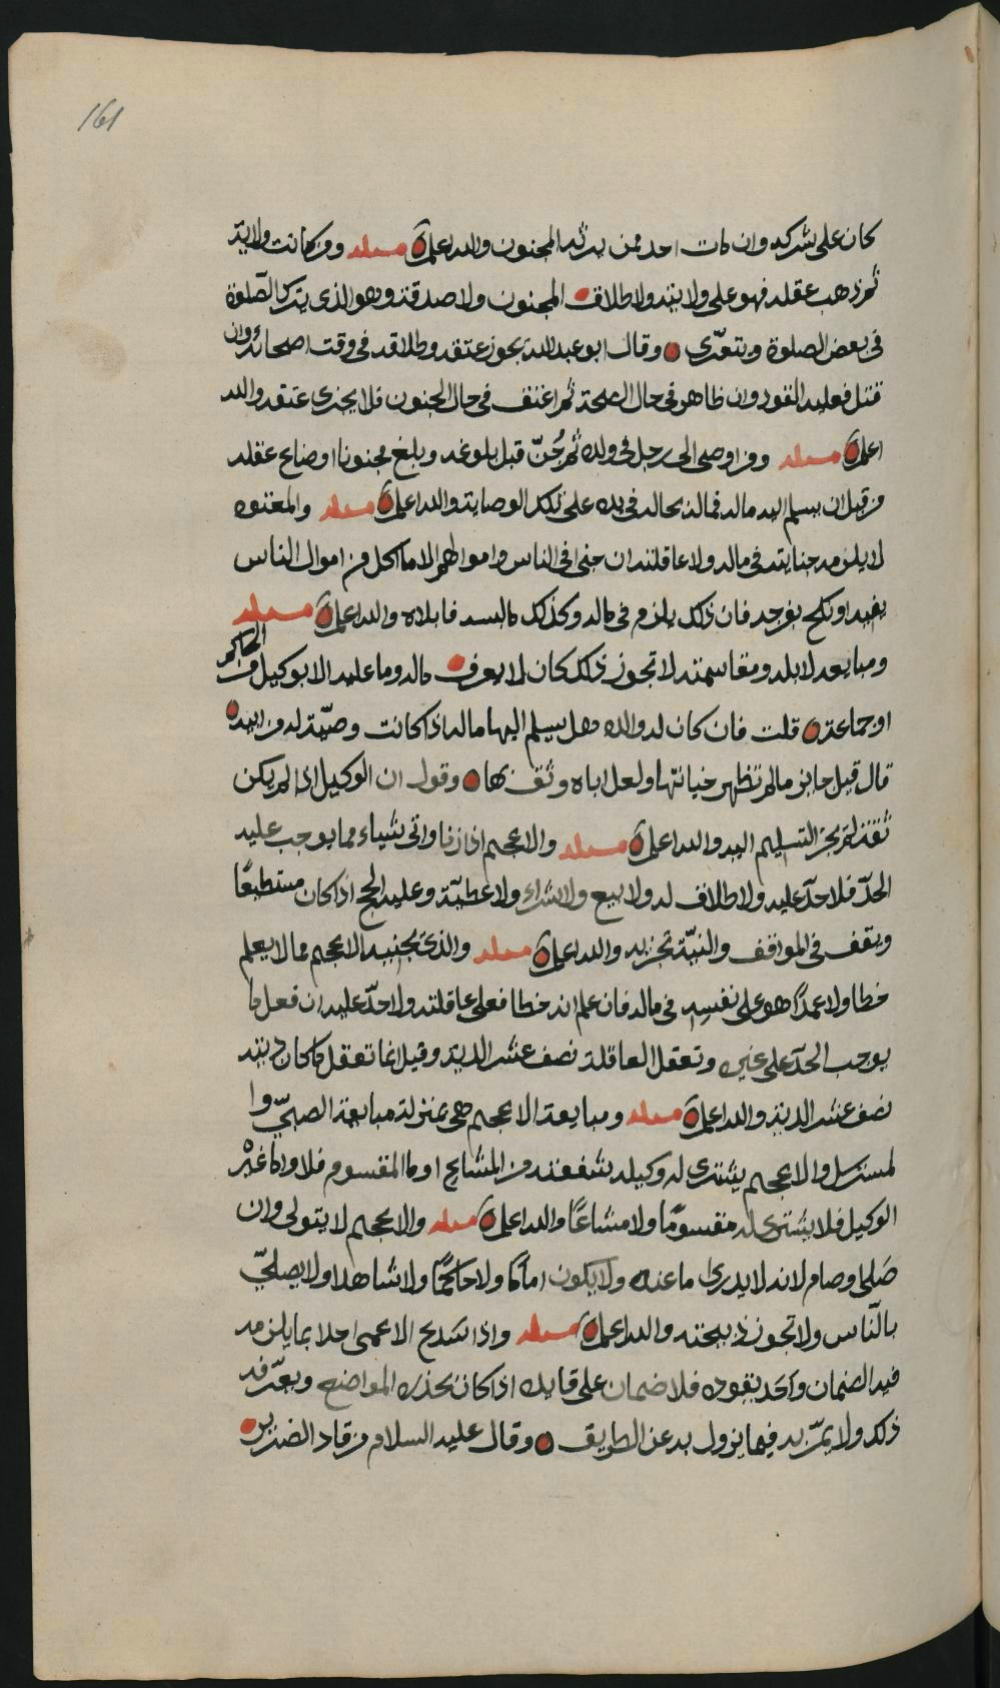 161
كان على شركه وان مات احد ممن يرثه المجنون والله اعلم مسئله ومن كانت ولايته
ثم ذهب عقله فهو على ولايته ولا طلاق المجنون ولا صدقته وهو الذي يترك الصّلوة
في بعض الصلوة ويتعرّى وقال ابو عبدالله يجوز عتقه وطلاقه في وقت اصحائه وان
قتل فعليه القود وان ظاهر في حال الصحة ثم اعتق في حال الجنون فلا يجزى عتقه والله
اعلم مسئله ومن اوصى الى رجل في ولده ثم جُنّ قبل بلوغه وبلغ مجنونا اوضاع عقله
من قبل ان يسلم اليه ماله فماله بحاله في يده على تلك الوصاية والله اعلم مسئله والمعتوه
لا يلزمه جنايته في ماله ولا عاقلته ان جنى في الناس واموالهم الا ما اكل من اموال الناس
بفيه او نكح بفرجه فان ذلك يلزم في ماله وكذلك ما لبسه فابلاه والله اعلم مسئله
ومبايعه لا بله ومقاسمته لا تجوز ذلك كان لا يعرف ماله وما عليه الا بوكيل من الحاكم
او جماعة قلت فان كان له والده هل يسلم اليها ماله اذا كانت وصيّة له من ابيه
قال قيل جايز ما لم تظهر خيانتها ولعل اباه وثق بها وقول ان الوكيل اذا لم يكن
ثقة لم يجز التسليم اليه والله اعلم مسئله والاعجم اذا زنا واتى بشياء مما يوجب عليه
الحدّ فلا حدّ عليه ولا طلاق له ولا بيع ولا شراء ولا عطيّة وعليه الحج اذا كان مستطيعًا
ويقف في المواقف والنيّة تجزيه والله اعلم مسئله والذي يجنيه الاعجم ما لا يعلم
خطا ولا عمدًا هو على نفسه في ماله فان علم انه خطا فعلى عاقلته ولا حدّ عليه ان فعل ما
يوجب الحدّ على غيره وتعقل العاقلة نصف عشر الدية وقيل انما تعقل ما كان ديته
نصف عشر الدية والله اعلم مسئله ومبايعة الاعجم هي بمنزلة مبايعة الصبيّ وا
لمسترسل والاعجم يشترى له وكيله بشفعته من المشايع اوما المقسوم فلا واما غيْر
الوكيل فلا يشترى له مقسومًا ولا مشاعًا والله اعلم مسئله والاعجم لا يتولى وان
صَلى وصام لانه لا يدرى ما عنده ولا يكون امامًا ولا حاكمًا ولا شاهدا ولا يصليّ
بالنّاس ولا تجوز ذبيحته والله اعلم مسئله واذا سَدع الاعمى احدا بما يلزمه
فيه الضمان واَحَد يقوده فلا ضمان على قايده اذا كان يحذره المواضع ويعرّفه
ذلك ولا يمرّ به فيما يزول به عن الطريق وقال عليه السلام من قاد الضرير